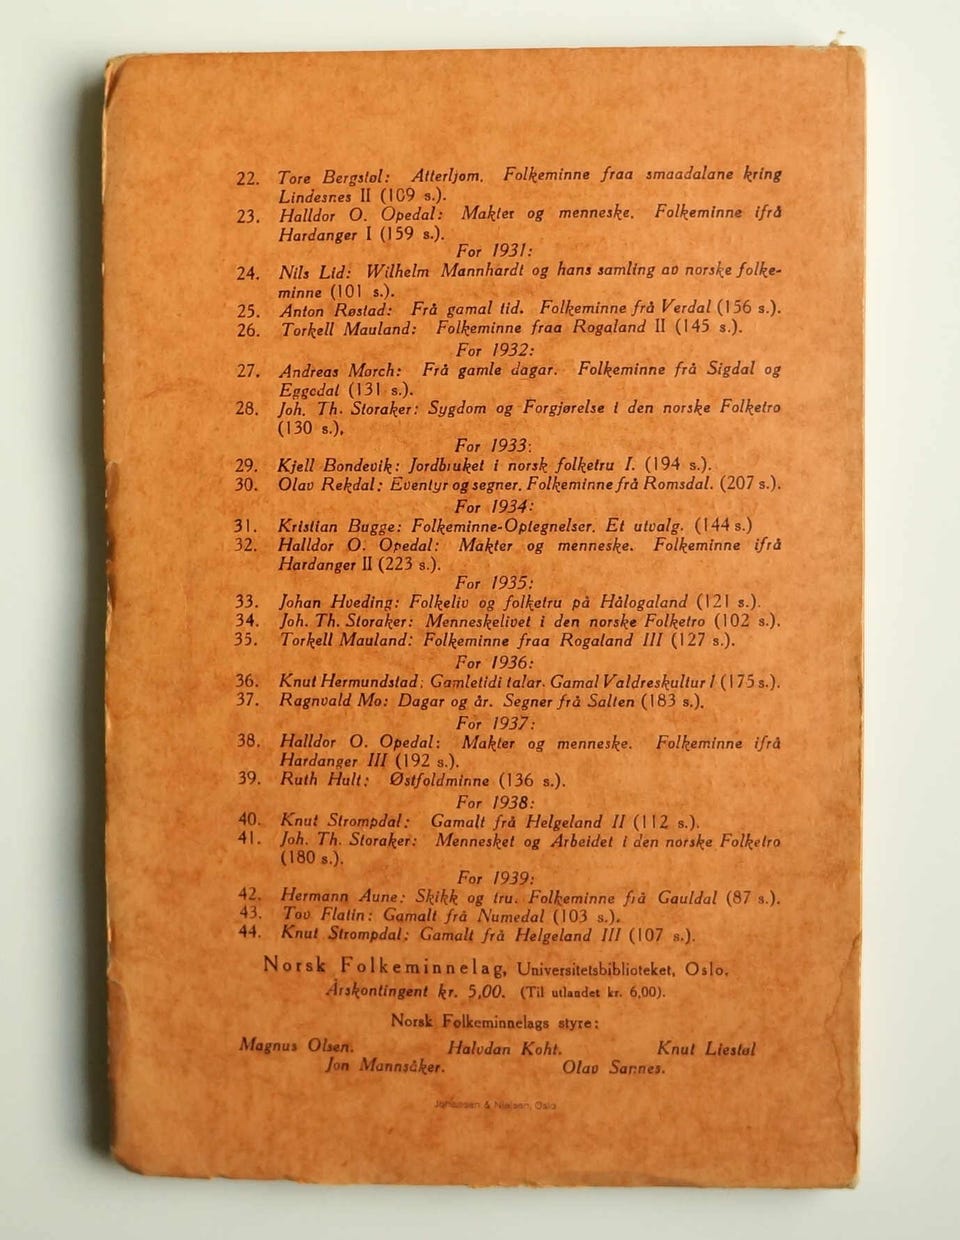 22. Tore Bergstøl: Atterljom. Folkeminne fraa smaadalane kring
Lindesnes II (109 s.).
23. Halldor O. Opedal: Makter og menneske. Folkeminne ifrå
Hardanger I (159 s.).
For 1931:
24. Nils Lid: Wilhelm Mannhardt og hans samling av norske folke-
minne (101 s.).
25. Anton Røstad: Frå gamal tid. Folkeminne frå Verdal (156 s.).
26. Torkell Mauland: Folkeminne fraa Rogaland II (145 s.).
For 1932:
27. Andreas Mørch: Frå gamle dagar. Folkeminne frå Sigdal og
Eggedal (131 s.).
28. Joh. Th. Storaker: Sygdom og Forgjørelse i den norske Folketro
(130 s.),
For 1933:
29. Kjell Bondevik: Jordbruket i norsk folketru I. (194 s.).
30. Olav Rekdal: Eventyr og segner. Folkeminne frå Romsdal. (207 s.).
For 1934:
31. Kristian Bugge: Folkeminne-Optegnelser. Et utvalg. (144 s.)
32. Halldor O. Opedal: Makter og menneske. Folkeminne ifrå
Hardanger II (223 s.).
For 1935:
33. Johan Hveding: Folkeliv og folketru på Hålogaland (121 s.).
34. Joh. Th. Storaker: Menneskelivet i den norske Folketro (102 s.).
35. Torkell Mauland: Folkeminne fraa Rogaland III (127 s.).
For 1936:
36. Knut Hermundstad: Gamletidi talar. Gamal Valdreskultur I (175 s.).
37. Ragnvald Mo: Dagar og år. Segner frå Salten (183 s.).
For 1937:
38. Halldor O. Opedal: Makter og menneske. Folkeminne ifrå
Hardanger III (192 s.).
39. Ruth Hult: Østfoldminne (136 s.).
For 1938:
40. Knut Strompdal: Gamalt frå Helgeland II (112 s.).
41. Joh. Th. Storaker: Mennesket og Arbeidet i den norske Folketro
(180 s.).
For 1939:
42. Hermann Aune: Skikk og tru. Folkeminne frå Gauldal (87 s.).
43. Tov Flatin: Gamalt frå Numedal (103 s.).
44. Knut Strompdal: Gamalt frå Helgeland III (107 s.).
Norsk Folkeminnelag, Universitetsbiblioteket, Oslo.
Årskontingent kr. 5,00. (Til utlandet kr. 6,00).
Norsk Folkeminnelags styre:
Magnus Olsen. Halvdan Koht. Knut Liestøl
Jon Mannsåker. Olav Sannes.
Johansen & Nielsen, Oslo